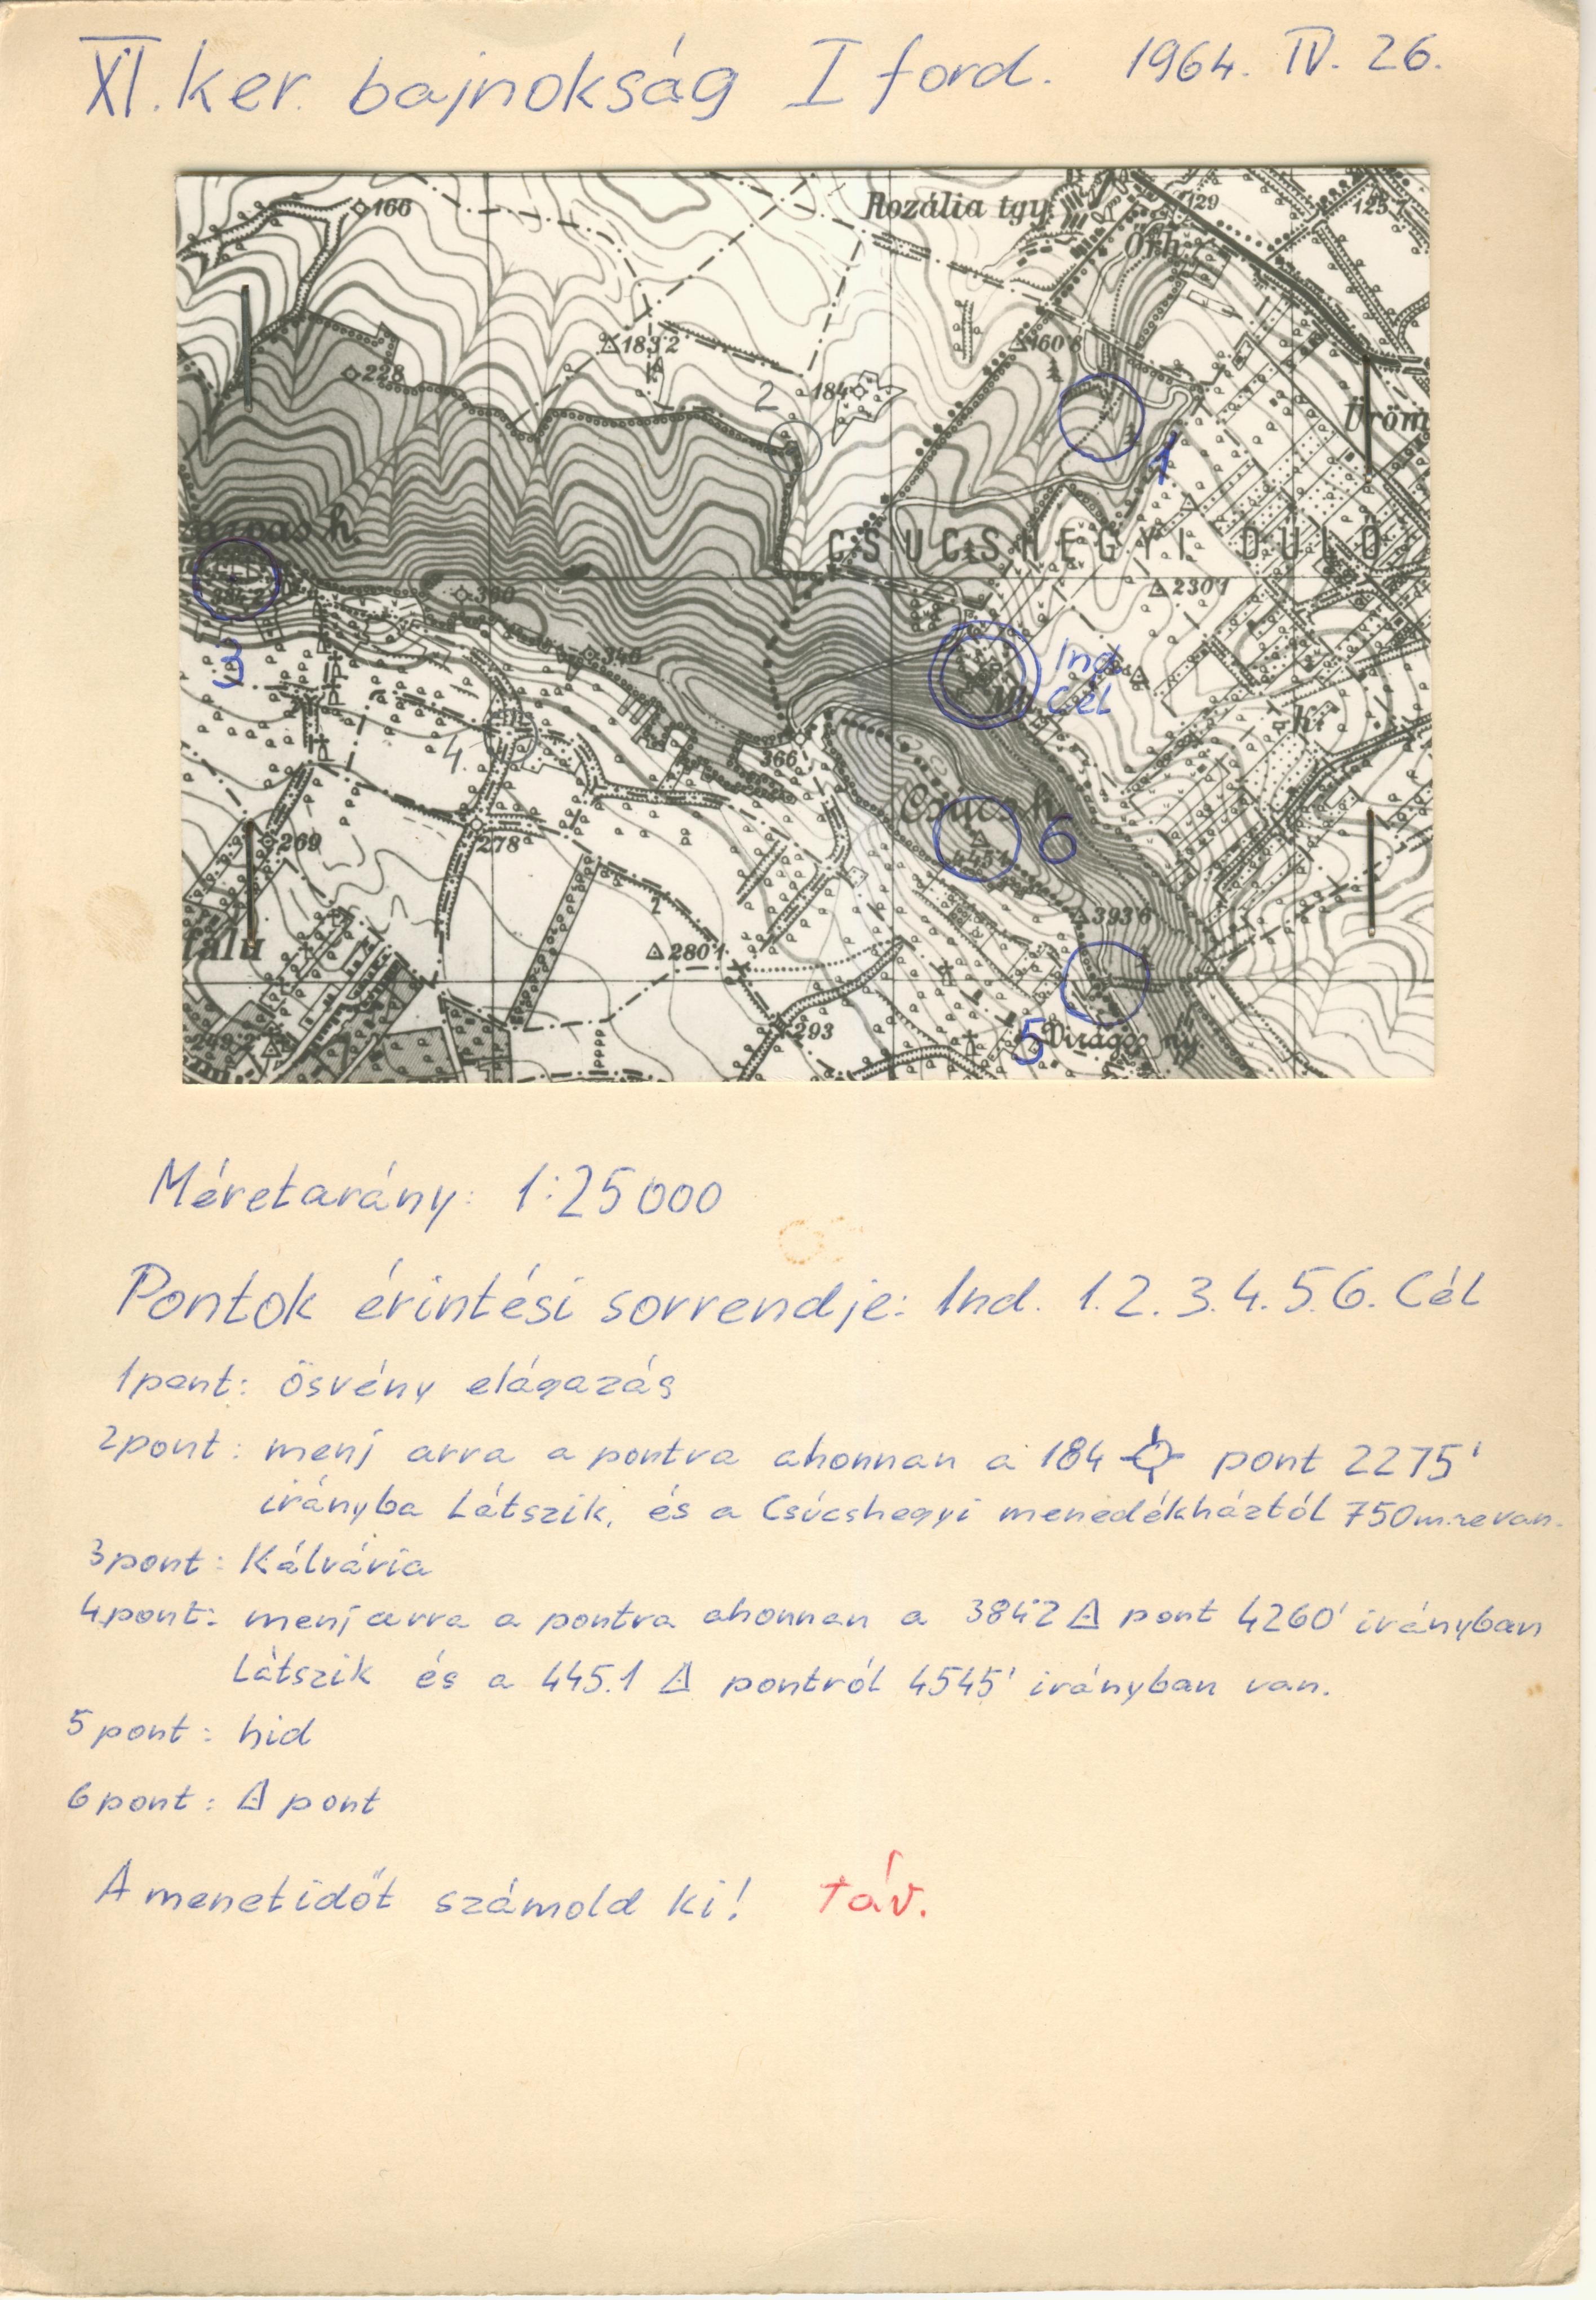 XI. ker. bajnokság I ford. 1964. IV. 26.
166
Rozália tgy.
129
125.1
Örh.
183.2
160.8
228
2
184
Üröm
1
CSUCSHEGYI DÜLŐ
360
230.1
384.2
3
346
Ind.
Cél
4.
366
Csúcs h.
445.1
6
269
278
393.6
falu
280.1
293
5
Virágos ny.
Méretarány: 1:25000
Pontok érintési sorrendje: Ind. 1. 2. 3. 4. 5. 6. Cél
1pont: ösvény elágazás
2pont: menj arra a pontra ahonnan a 184 pont 2275'
irányba látszik, és a Csúcshegyi menedékháztól 750m.re van.
3pont: Kálvária
4pont: menj arra a pontra ahonnan a 384.2 △ pont 4260' irányban
látszik és a 445.1 △ pontról 4545' irányban van.
5pont: hid
6pont: △ pont
A menetidőt számold ki! táv.